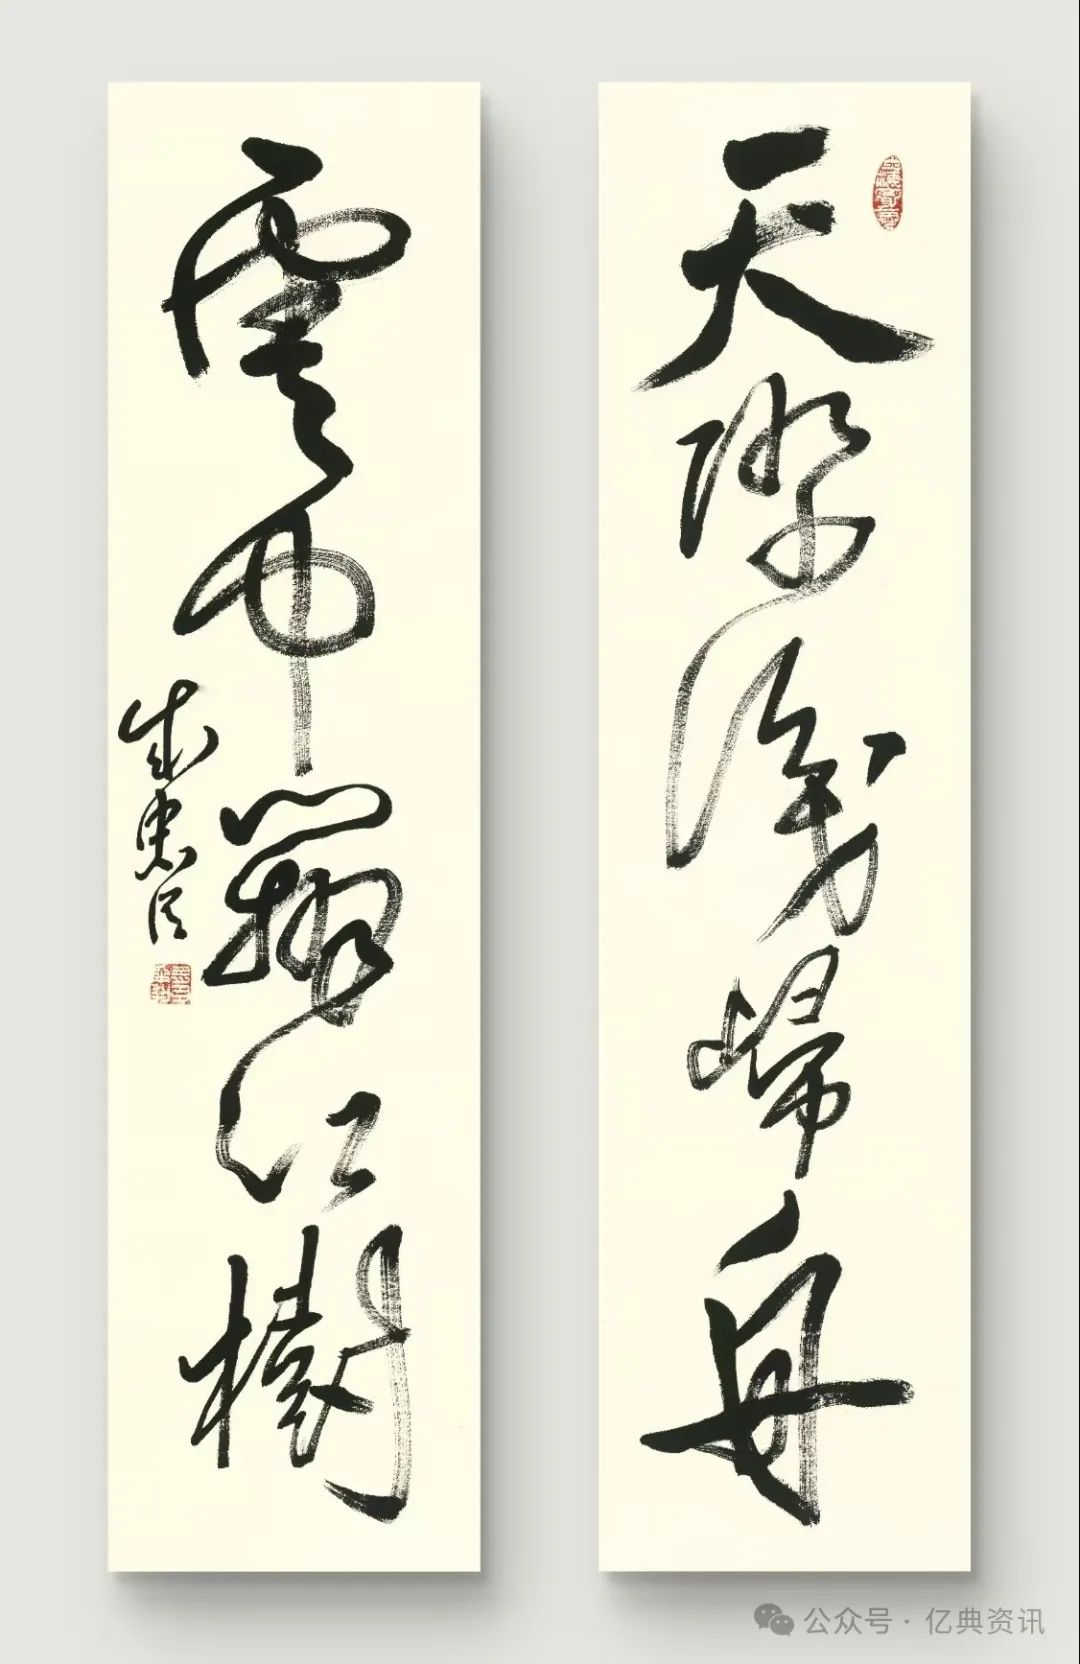 天際識歸舟
雲中辨江樹
公众号 · 亿典资讯